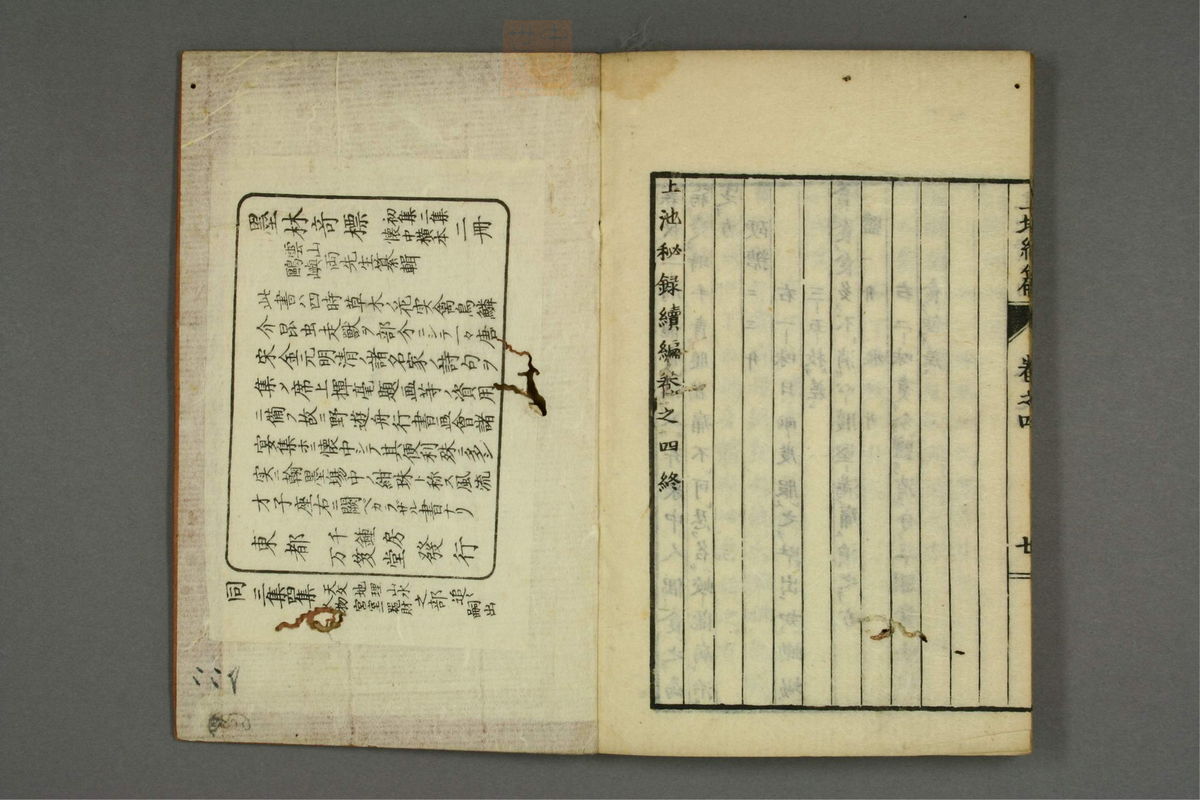 上池秘録續編巻之四終
巻之四
墨林竒標 初集二集 懐中横本 二冊
雲山鷗嶼両先生纂輯
此書ハ四時草木ノ花実禽鳥鱗
介昆虫走獣ヲ部分ニシテ一々唐
宋金元明清諸名家ノ詩句ヲ
集メ席上揮毫題画等ノ資用
ニ備フ故ニ野遊舟行書画會諸
宴集ホニ懐中シテ其便利殊ニ多シ
実ニ翰墨場中ノ紺珠ト称ス風流
才子座右ニ闕ベカラザル書ナリ
東都 千鍾房 万笈堂 發行
同 三集四集 天文地理山水 人物宮室器財 之部 追々嗣出